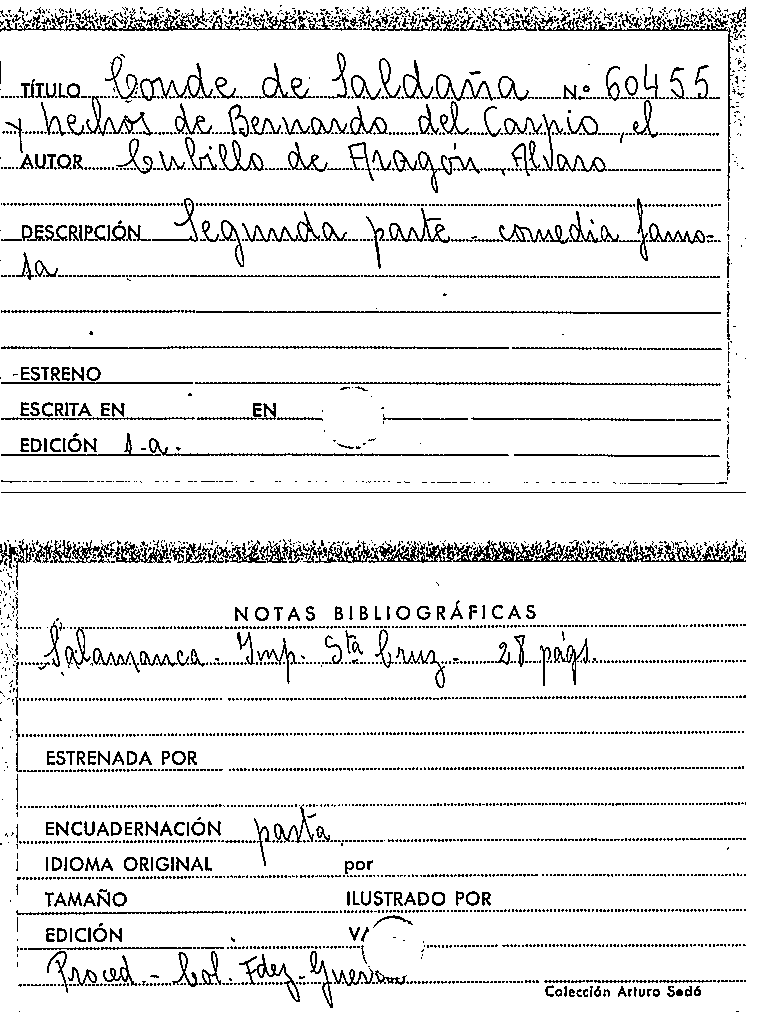 TÍTULO Conde de Saldaña N.º 60455
y hechos de Bernardo del Carpio, el
AUTOR Cubillo de Aragón, Alvaro
DESCRIPCIÓN Segunda parte - comedia famo-
sa
ESTRENO
ESCRITA EN EN
EDICIÓN s.a.
NOTAS BIBLIOGRÁFICAS
Salamanca. Imp. Sta Cruz - 28 págs.
ESTRENADA POR
ENCUADERNACIÓN pasta
IDIOMA ORIGINAL por
TAMAÑO ILUSTRADO POR
EDICIÓN
Proced - Col. Fdez-Guerra
Colección Arturo Sedó